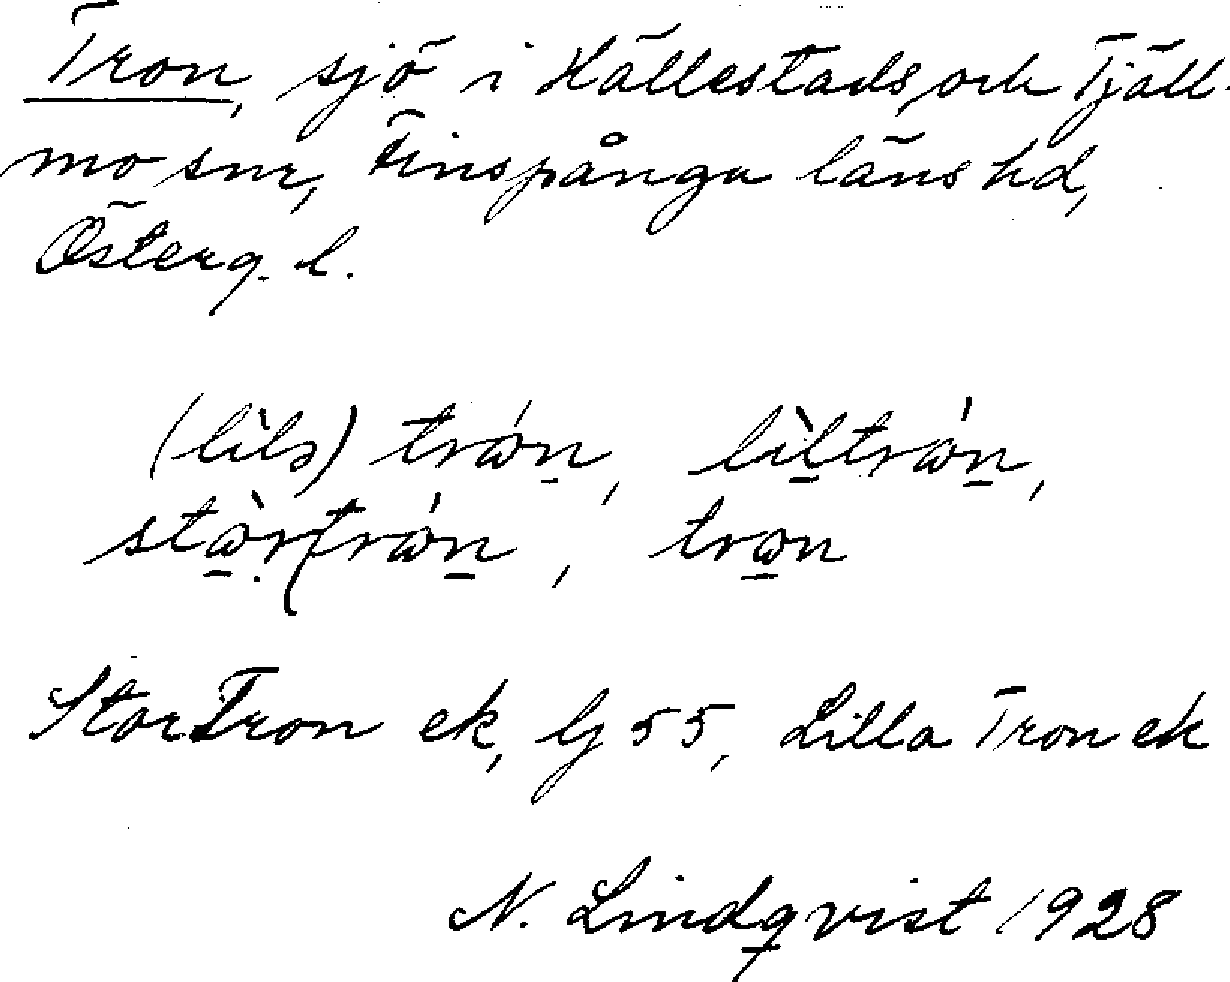 Tron, sjö i Hällestads och Tjäll-
mo snr, Finspånga läns hd,
Österg. l.
(lìls) trón, lìltrón,
stòrtrón, tron
Stor Tron ek, bj 55, Lilla Tron ek
N. Lindqvist 1928